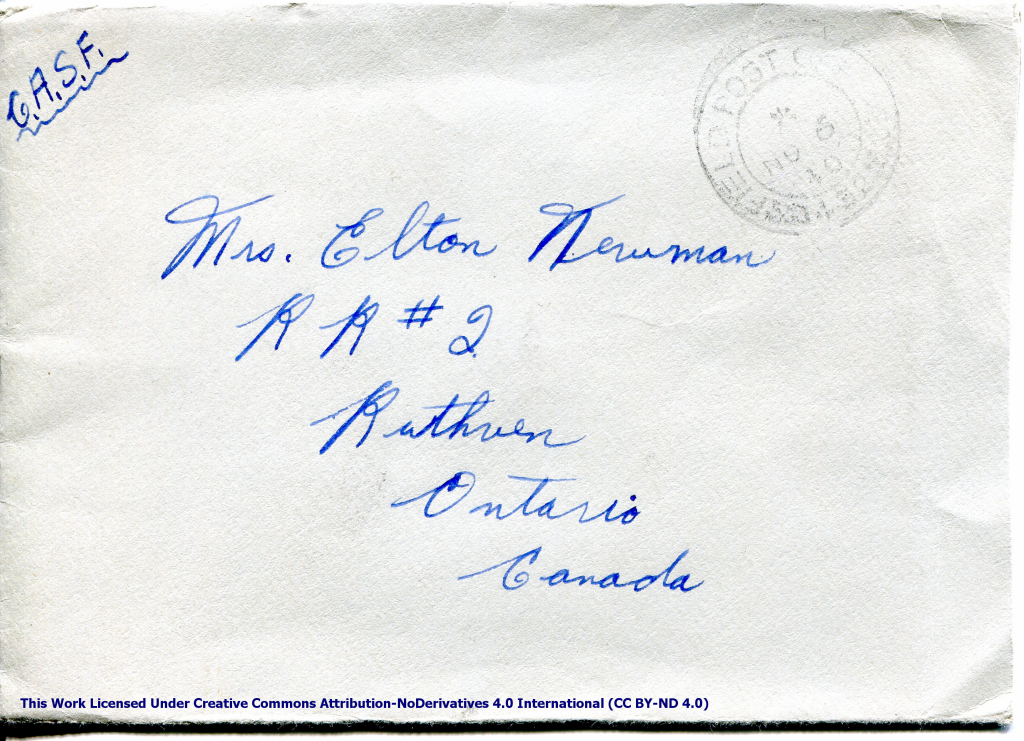 C.A.S.F.
FIELD POST
NO 6
40
Mrs. Elton Newman
R R # 2
Ruthven
Ontario
Canada
This Work Licensed Under Creative Commons Attribution-NoDerivatives 4.0 International (CC BY-ND 4.0)